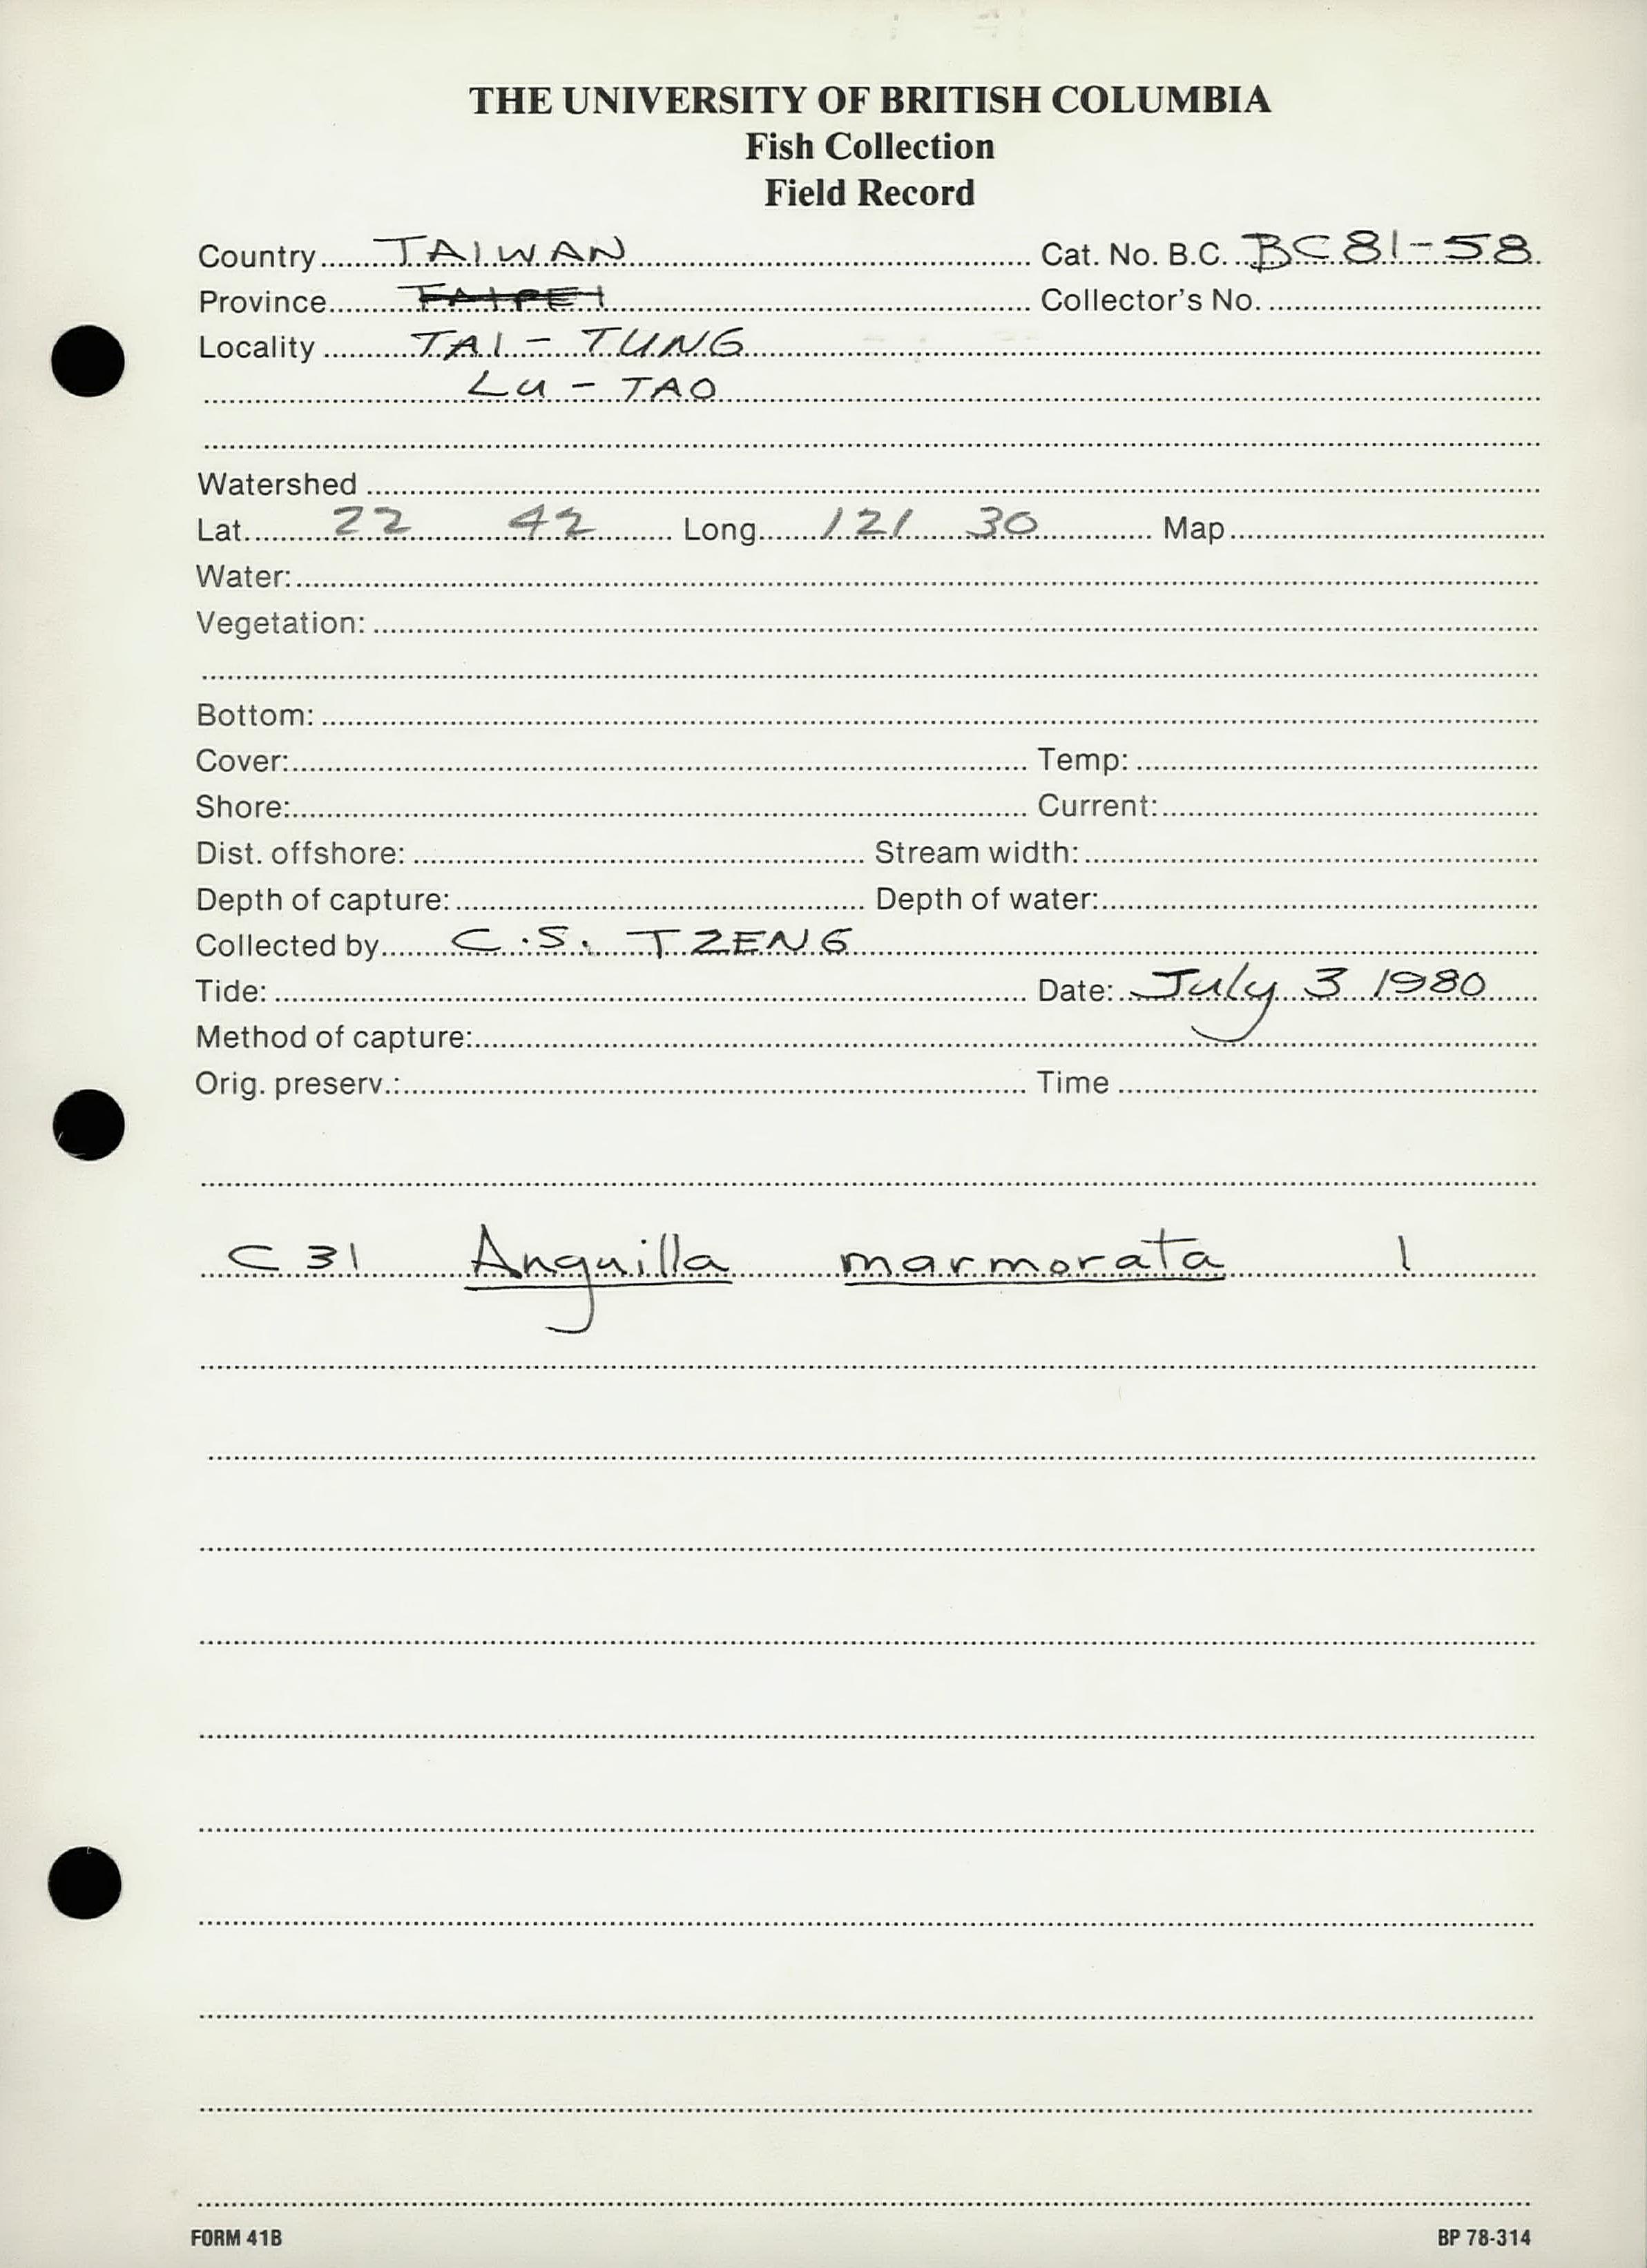 THE UNIVERSITY OF BRITISH COLUMBIA
Fish Collection
Field Record
Country TAIWAN Cat. No. B.C. BC 81-58
Province TAIPEI Collector's No.
Locality TAI - TUNG
LU - TAO
Watershed
Lat. 22 42 Long. 121 30 Map
Water:
Vegetation:
Bottom:
Cover: Temp:
Shore: Current:
Dist. offshore: Stream width:
Depth of capture: Depth of water:
Collected by C.S. TZENG
Tide: Date: July 3 1980
Method of capture:
Orig. preserv.: Time
C 31 Anguilla marmorata 1
FORM 41B BP 78-314